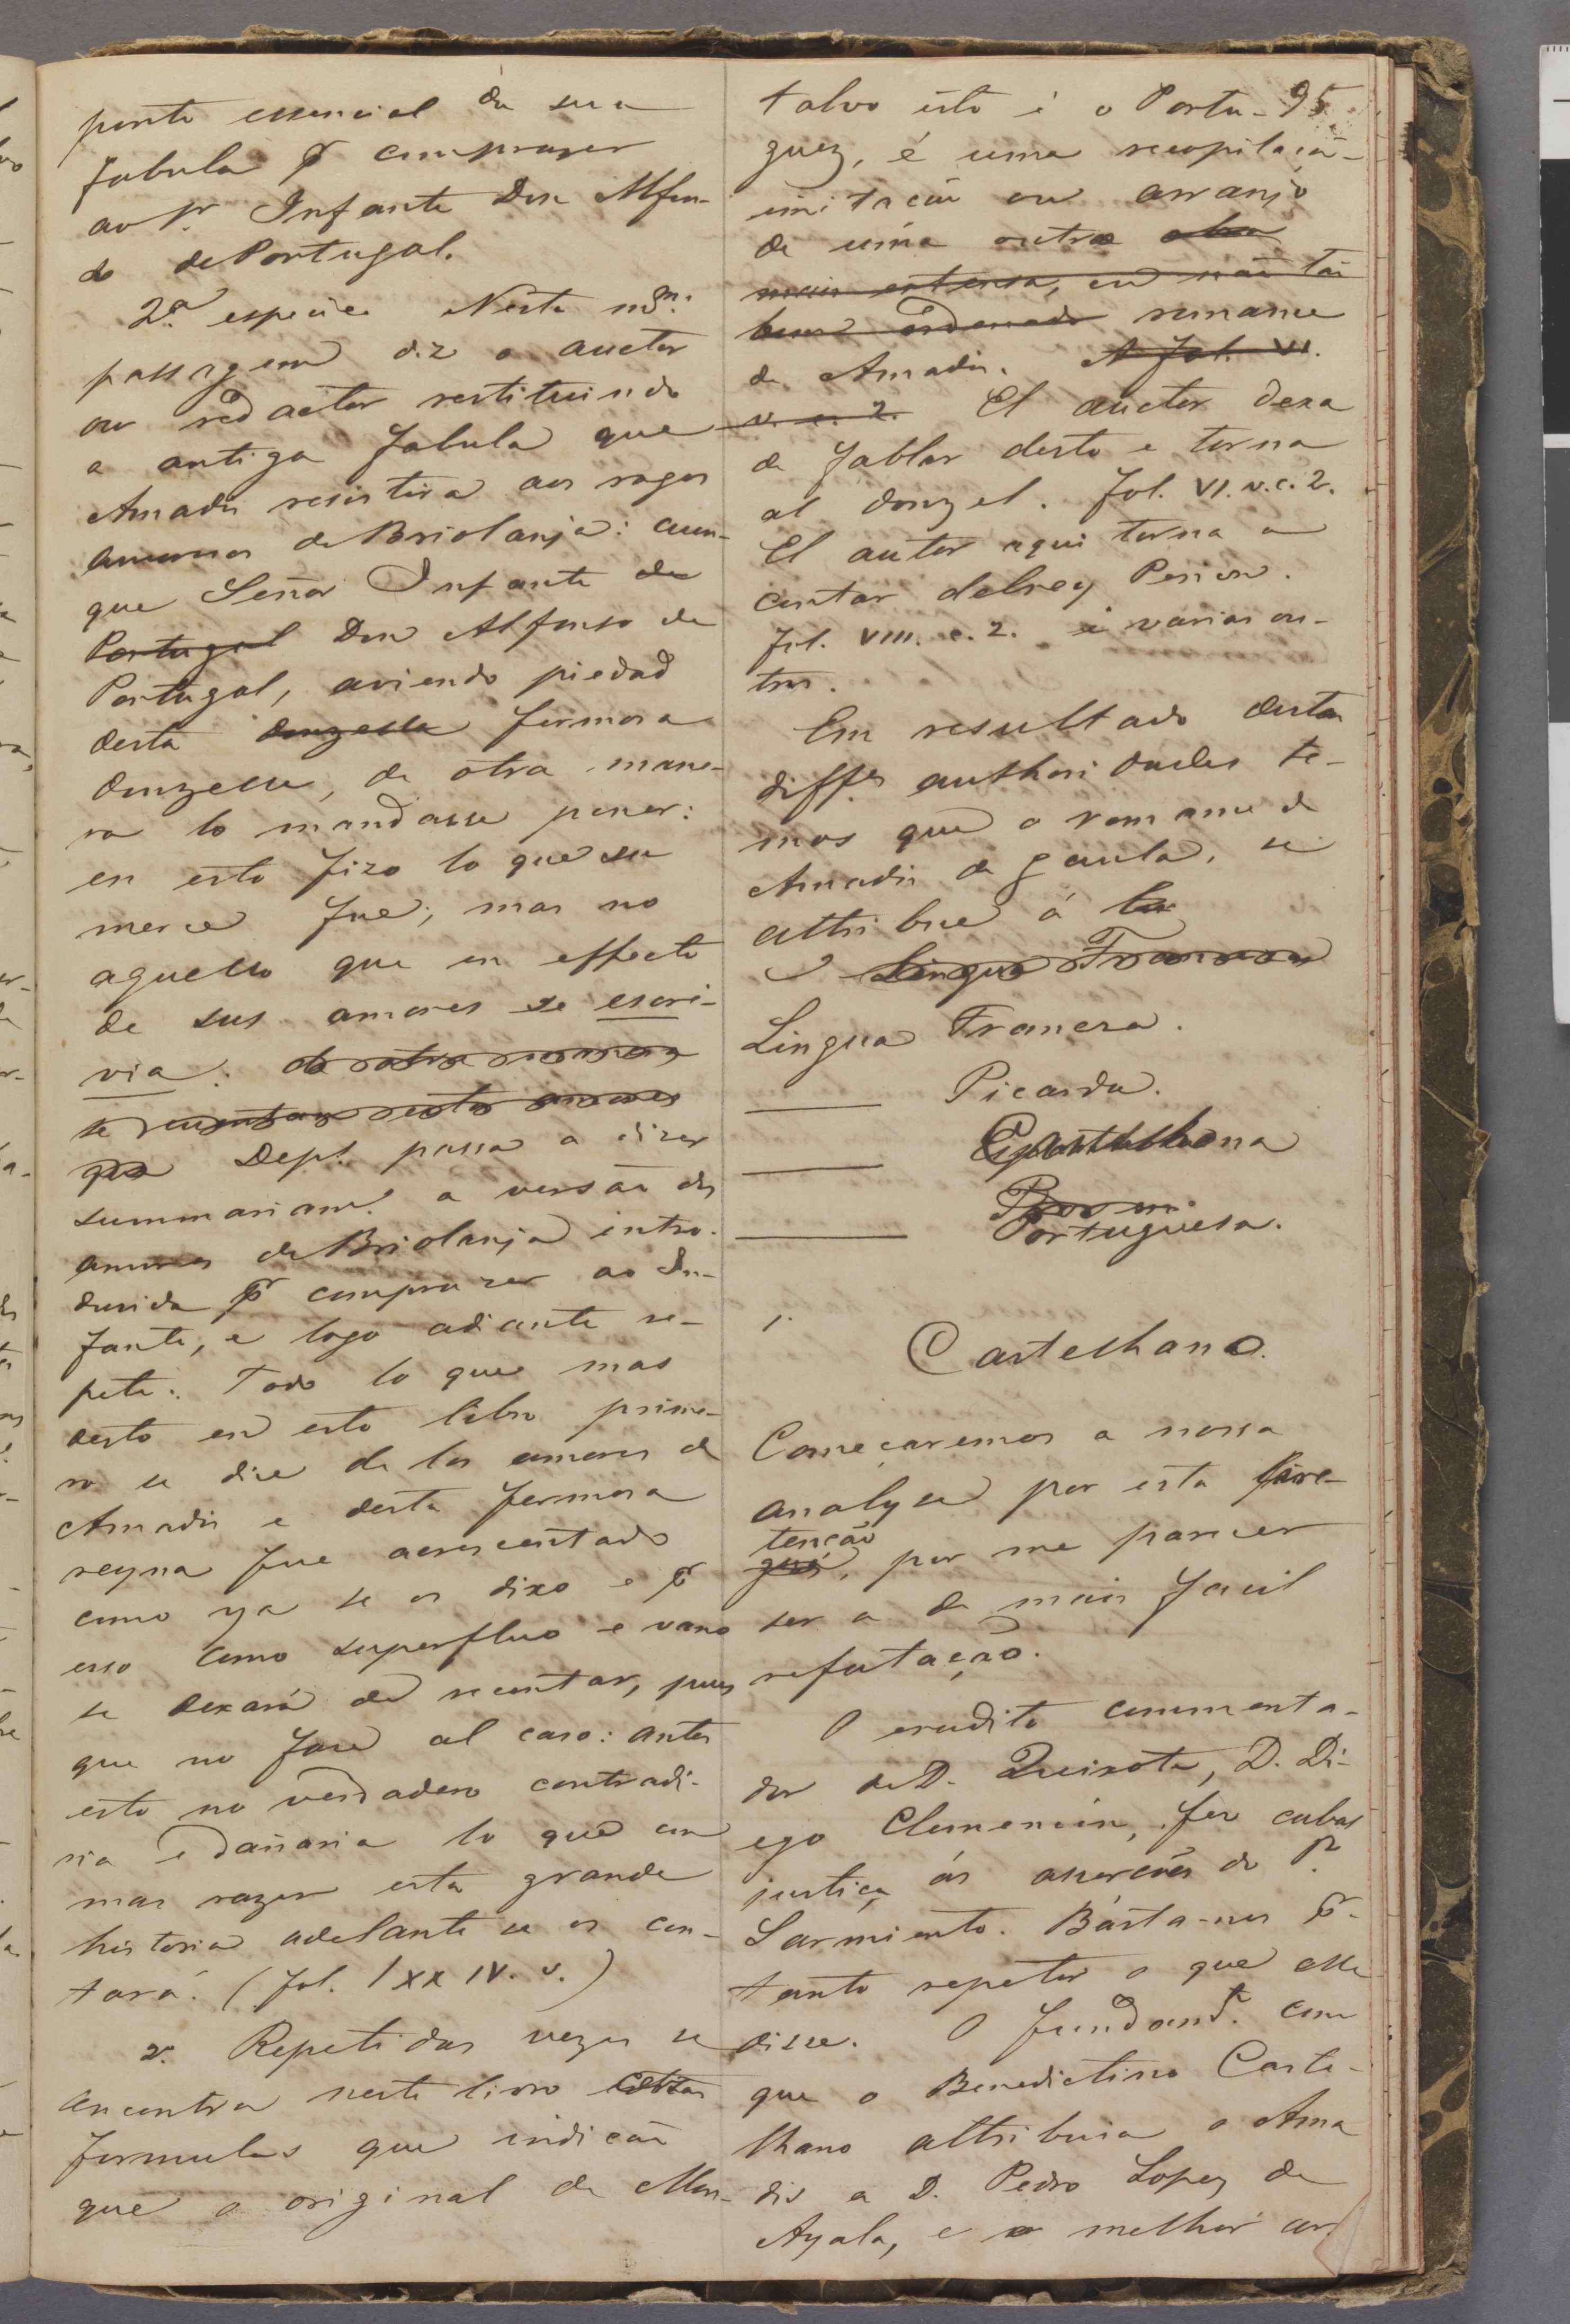 ponto essencial da sua
fabula pr comprazer
ao Sr. Infante Don Alfon-
so de Portugal.
2ª especie Nesta mma.
passagem diz o auctor
ou redactor restituindo
a antiga fabula que
Amadis resistira aos rogos
amorosos de Briolanja: aun-
que Señor Infante de
Portugal Don Alfonso de
Portugal, aviendo piedad
desta donzella fermosa
donzella, de otra mane-
ra lo mandasse poner:
en esto fizo lo que su
merced fue; mas no
aquello que en effecto
de sus amores se escri-
via. de otra manera
se cuentan estos amores
que Dept. passa a dizer
summariamt. a versão dos
amores de Briolanja intro-
dusida pr comprazer ao In-
fante, e logo adiante re-
pete. Todo lo que mas
desto en este libro prime-
ro se dize de los amores de
Amadis e desta fermosa
reyna fue acrescentado
como ya se os dixo e pr
esso como superfluo e vano
se dexará de recontar, pues
que no face al caso: antes
esto no verdadero contradi-
ria e dañaria lo que con
mas razon esta grande
historia adelante se os con-
tará. (fol. lxxiv. v.)
2. Repetidas vezes se
encontra neste livro estas
formulas que indicão
que o original de Mon-
talvo isto é o Portu- 95
guez, é uma recopilacão-
imitacão ou arranjo
de uma outra obra
mais extensa, ou não tão
bem ordenada romance
de Amadis. A fol. VI.
v. c. 2. El auctor dexa
de fablar desto e torna
al donzel. fol. VI. v. c. 2.
El autor aqui torna a
contar delrey Perion.
fol. VIII. c. 2. e varias ou-
tras.
Em resultado destas
diffes authoridades te-
mos que o romance de
Amadis de gaula, se
attribue á la
Lingua Francesa
Lingua Francesa.
——— Picarda.
——— Castelhana
——— Portuguesa.
1.
Castelhano.
Começaremos a nossa
analyse por esta pre-
tenção
gue, por me parecer
ser a de mais facil
refutação.
O erudito commenta-
dor de D. Quixote, D. Di-
ego Clemencin, fez cabal
justiça ás asserções do Pe
Sarmiento. Basta-nos por-
tanto repetir o que elle
disse. O fundamto. com
que o Benedictino Caste-
lhano attribuia o Ama
dis a D. Pedro Lopez de
Ayala, e o melhor ar